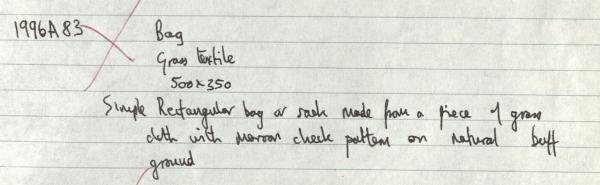 1996A83 Bag
Grass textile
500x350
Simple Rectangular bag or sack made from a piece of grass
cloth with maroon check pattern on natural buff
ground